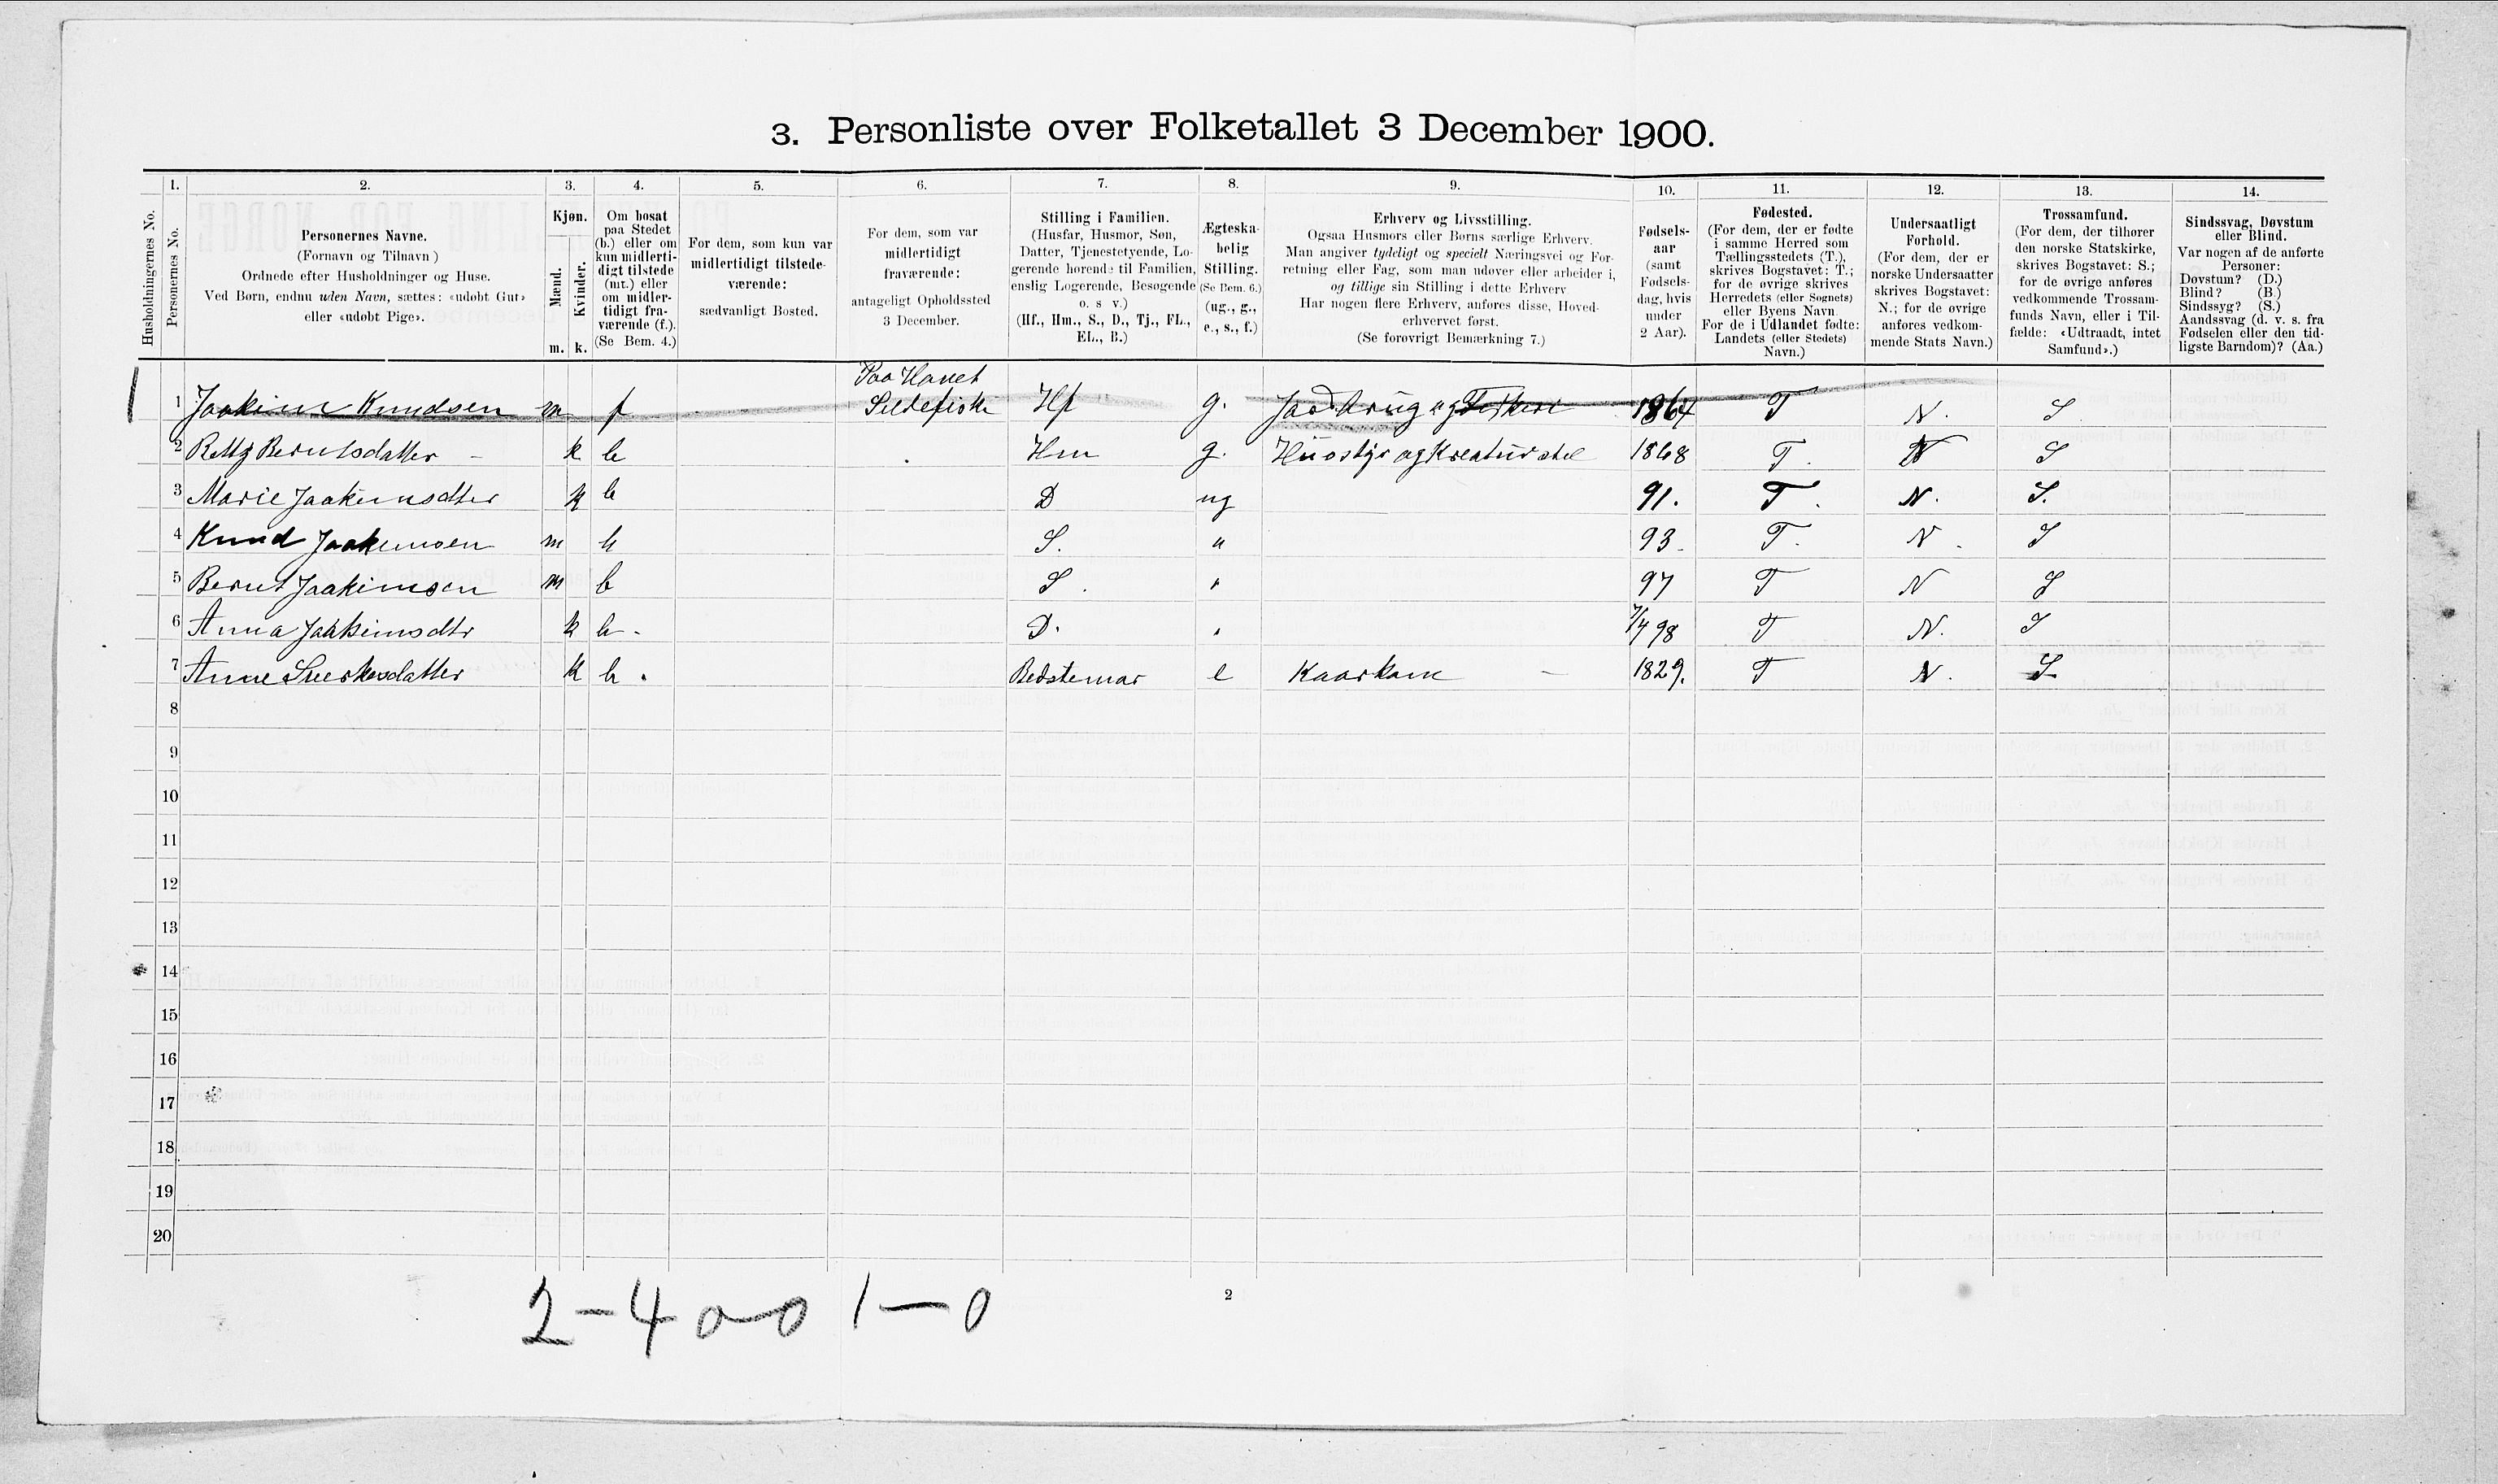 3. Personliste over Folketallet 3 December 1900.
Husholdningernes No.
1.
Personernes No.
2.
Personernes Navne.
(Fornavn og Tilnavn)
Ordnede efter Husholdninger og Huse.
Ved Børn, endnu uden Navn, sættes: «udøbt Gut»
eller «udøbt Pige».
3.
Kjøn.
Mænd.
Kvinder.
m. k.
4.
Om bosat
paa Stedet
(b.) eller om
kun midlerti-
digt tilstede
(mt.) eller
om midler-
tidigt fra-
værende (f.).
(Se Bem. 4.)
5.
For dem, som kun var
midlertidigt tilstede-
værende:
sædvanligt Bosted.
6.
For dem, som var
midlertidigt
fraværende:
antageligt Opholdssted
3 December.
7.
Stilling i Familien.
(Husfar, Husmor, Søn,
Datter, Tjenestetyende, Lo-
gerende hørende til Familien,
enslig Logerende, Besøgende
o. s v.)
(Hf., Hm., S., D., Tj., FL.,
EL., B.)
8.
Ægteska-
belig
Stilling.
(Se Bem. 6.)
(ug., g.,
e., s., f.)
9.
Erhverv og Livsstilling.
Ogsaa Husmors eller Børns særlige Erhverv.
Man angiver tydeligt og specielt Næringsvei og For-
retning eller Fag, som man udøver eller arbeider i,
og tillige sin Stilling i dette Erhverv
Har nogen flere Erhverv, anføres disse, Hoved-
erhvervet først.
(Se forøvrigt Bemærkning 7.)
10.
Fødsels-
aar
(samt
Fødsels-
dag, hvis
under
2 Aar).
11.
Fødested.
(For dem, der er fødte
i samme Herred som
Tællingsstedets (T.),
skrives Bogstavet: T.;
for de øvrige skrives
Herredets (eller Sognets)
eller Byens Navn
For de i Udlandet fødte:
Landets (eller Stedets)
Navn.)
12.
Undersaatligt
Forhold.
(For dem, der er
norske Undersaatter
skrives Bogstavet:
N.; for de øvrige
anføres vedkom-
mende Stats Navn.)
13.
Trossamfund.
(For dem, der tilhører
den norske Statskirke,
skrives Bogstavet: S.;
for de øvrige anføres
vedkommende Trossam-
funds Navn, eller i Til-
fælde: «Udtraadt, intet
Samfund».)
14.
Sindssvag, Døvstum
eller Blind.
Var nogen af de anførte
Personer:
Døvstum? (D.)
Blind? (B.)
Sindssyg? (S.)
Aandssvag (d. v. s. fra
Fødselen eller den tid-
ligste Barndom)? (Aa.)
Paa Havet
1 Jaakim Knudsen m f Sildefiske Hf g. Jordbrug og Fiskeri 1864 T N. S
2 Berntsdatter k b Hm g. Husstyr og Kreaturstel 1868 T. N S
3 Marie Jaakimsdtter k b D ug 91. T. N. S.
4 Knud Jaakimsen m b S. " 93. T. N. S
5 Bernt Jaakimsen m b S. " 97 T N S
6 Anna Jaakimsdtr k b. D. " 7/4 98 T N. S
7 Anne Sverkesdatter k b. Bedstemor e Kaarkone 1829. T N. S
8
9
10
11
12
13
14
15
16
17
18
19
20
2
2-4 0-0 1-0